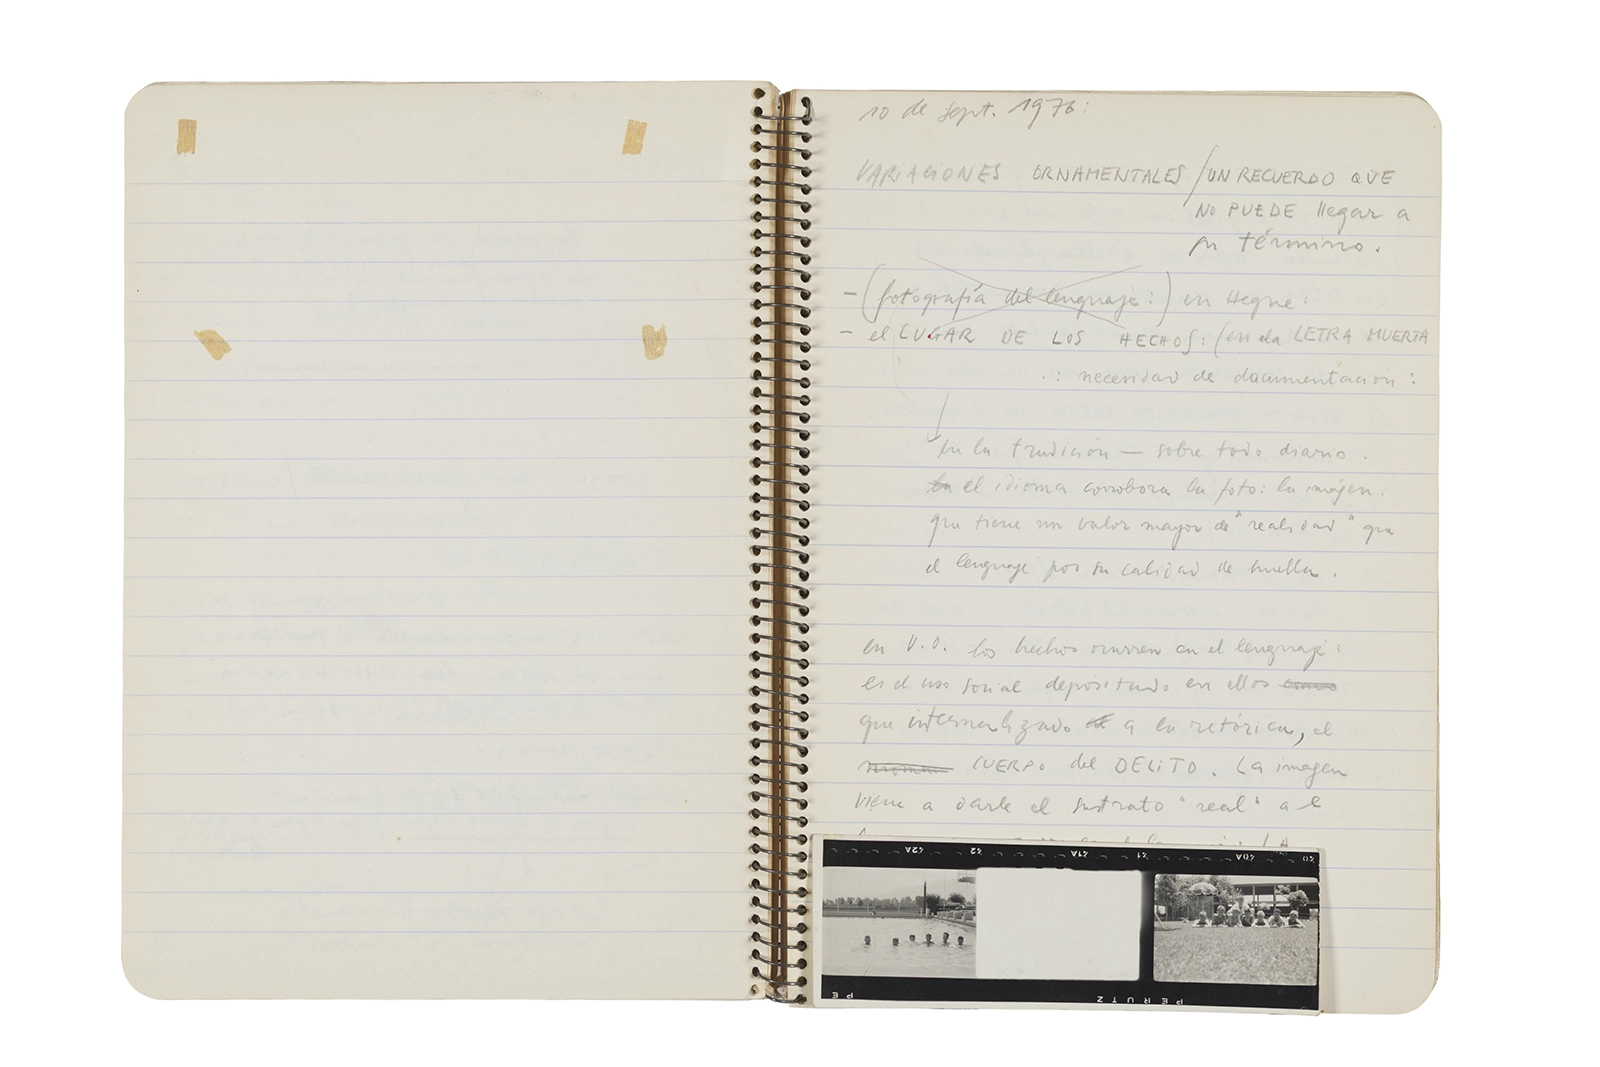 10 de sept. 1976:
VARIACIONES ORNAMENTALES / UN RECUERDO QUE
NO PUEDE llegar a
su término.
- (fotografía del lenguaje:) en Hegne:
- el LUGAR DE LOS HECHOS: (en la LETRA MUERTA
.: necesidad de documentación:
en la tradición — sobre todo diario.
en el idioma corrobora la foto: la imágen.
que tiene un valor mayor de "realidad" que
el lenguaje por su calidad de huella.
en V.O. los hechos ocurren en el lenguaje:
es el uso social depositado en ellos
que internalizado a la retórica, el
CUERPO del DELITO. La imagen
viene a darle el sustrato "real" a
42A 42 41A 41 40A 40
PE PERUTZ